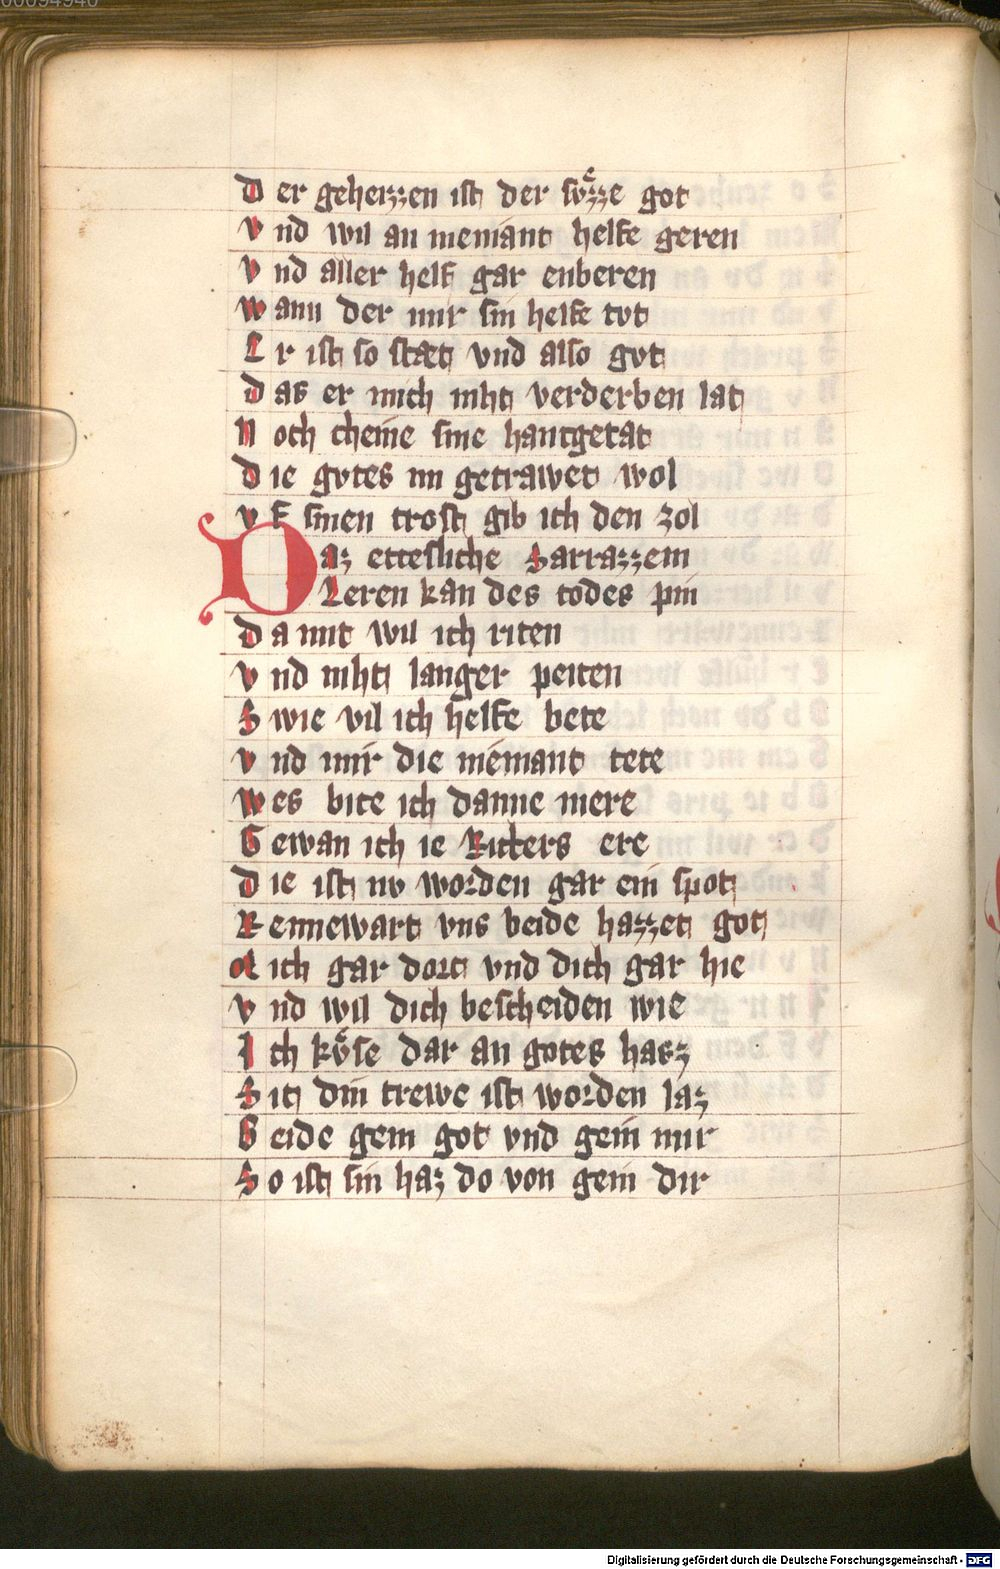 00094946
D er geheizzen ist der svͤzze got
V nd wil an nieniant helfe geren
V nd aller helf gar enberen
W ann der mir sin helfe tvt
E r ist so stæt vnd also gvt
D as er mich niht verderben lat
N och cheine sine hantgetat
D ie gvtes im getrawet wol
V f sinen trost gib ich den zol
Daz etteslîche Sarrazzein
Leren kan des todes pin
D a mit wil ich riten
V nd niht langer peiten
S wie vil ich helfe bete
V nd mir die niemant tete
W es bite ich danne mere
G ewan ich ie Ritters ere
D ie ist nv worden gar ein spot
R ennewart vns beide hazzet got
M ich gar dort vnd dich gar hie
V nd wil dich bescheiden wie
I ch kvͤse dar an gotes hasz
S it din trewe ist worden laz
B eide gein got vnd gein mir
S o ist sin haz do von gein dir
Digitalisierung gefördert durch die Deutsche Forschungsgemeinschaft - DFG